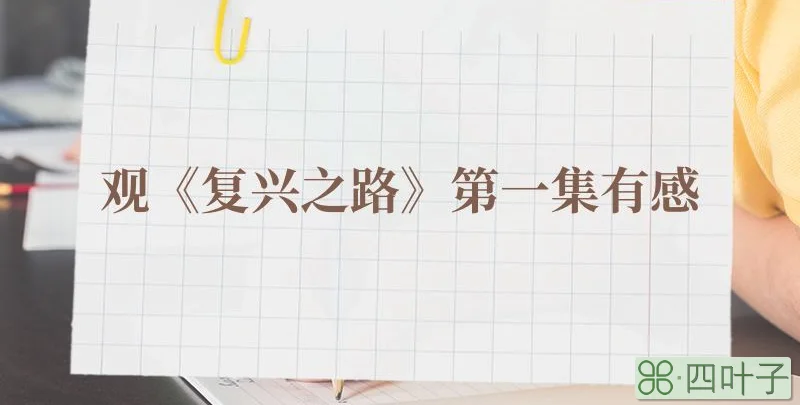 观《复兴之路》第一集有感
四叶子